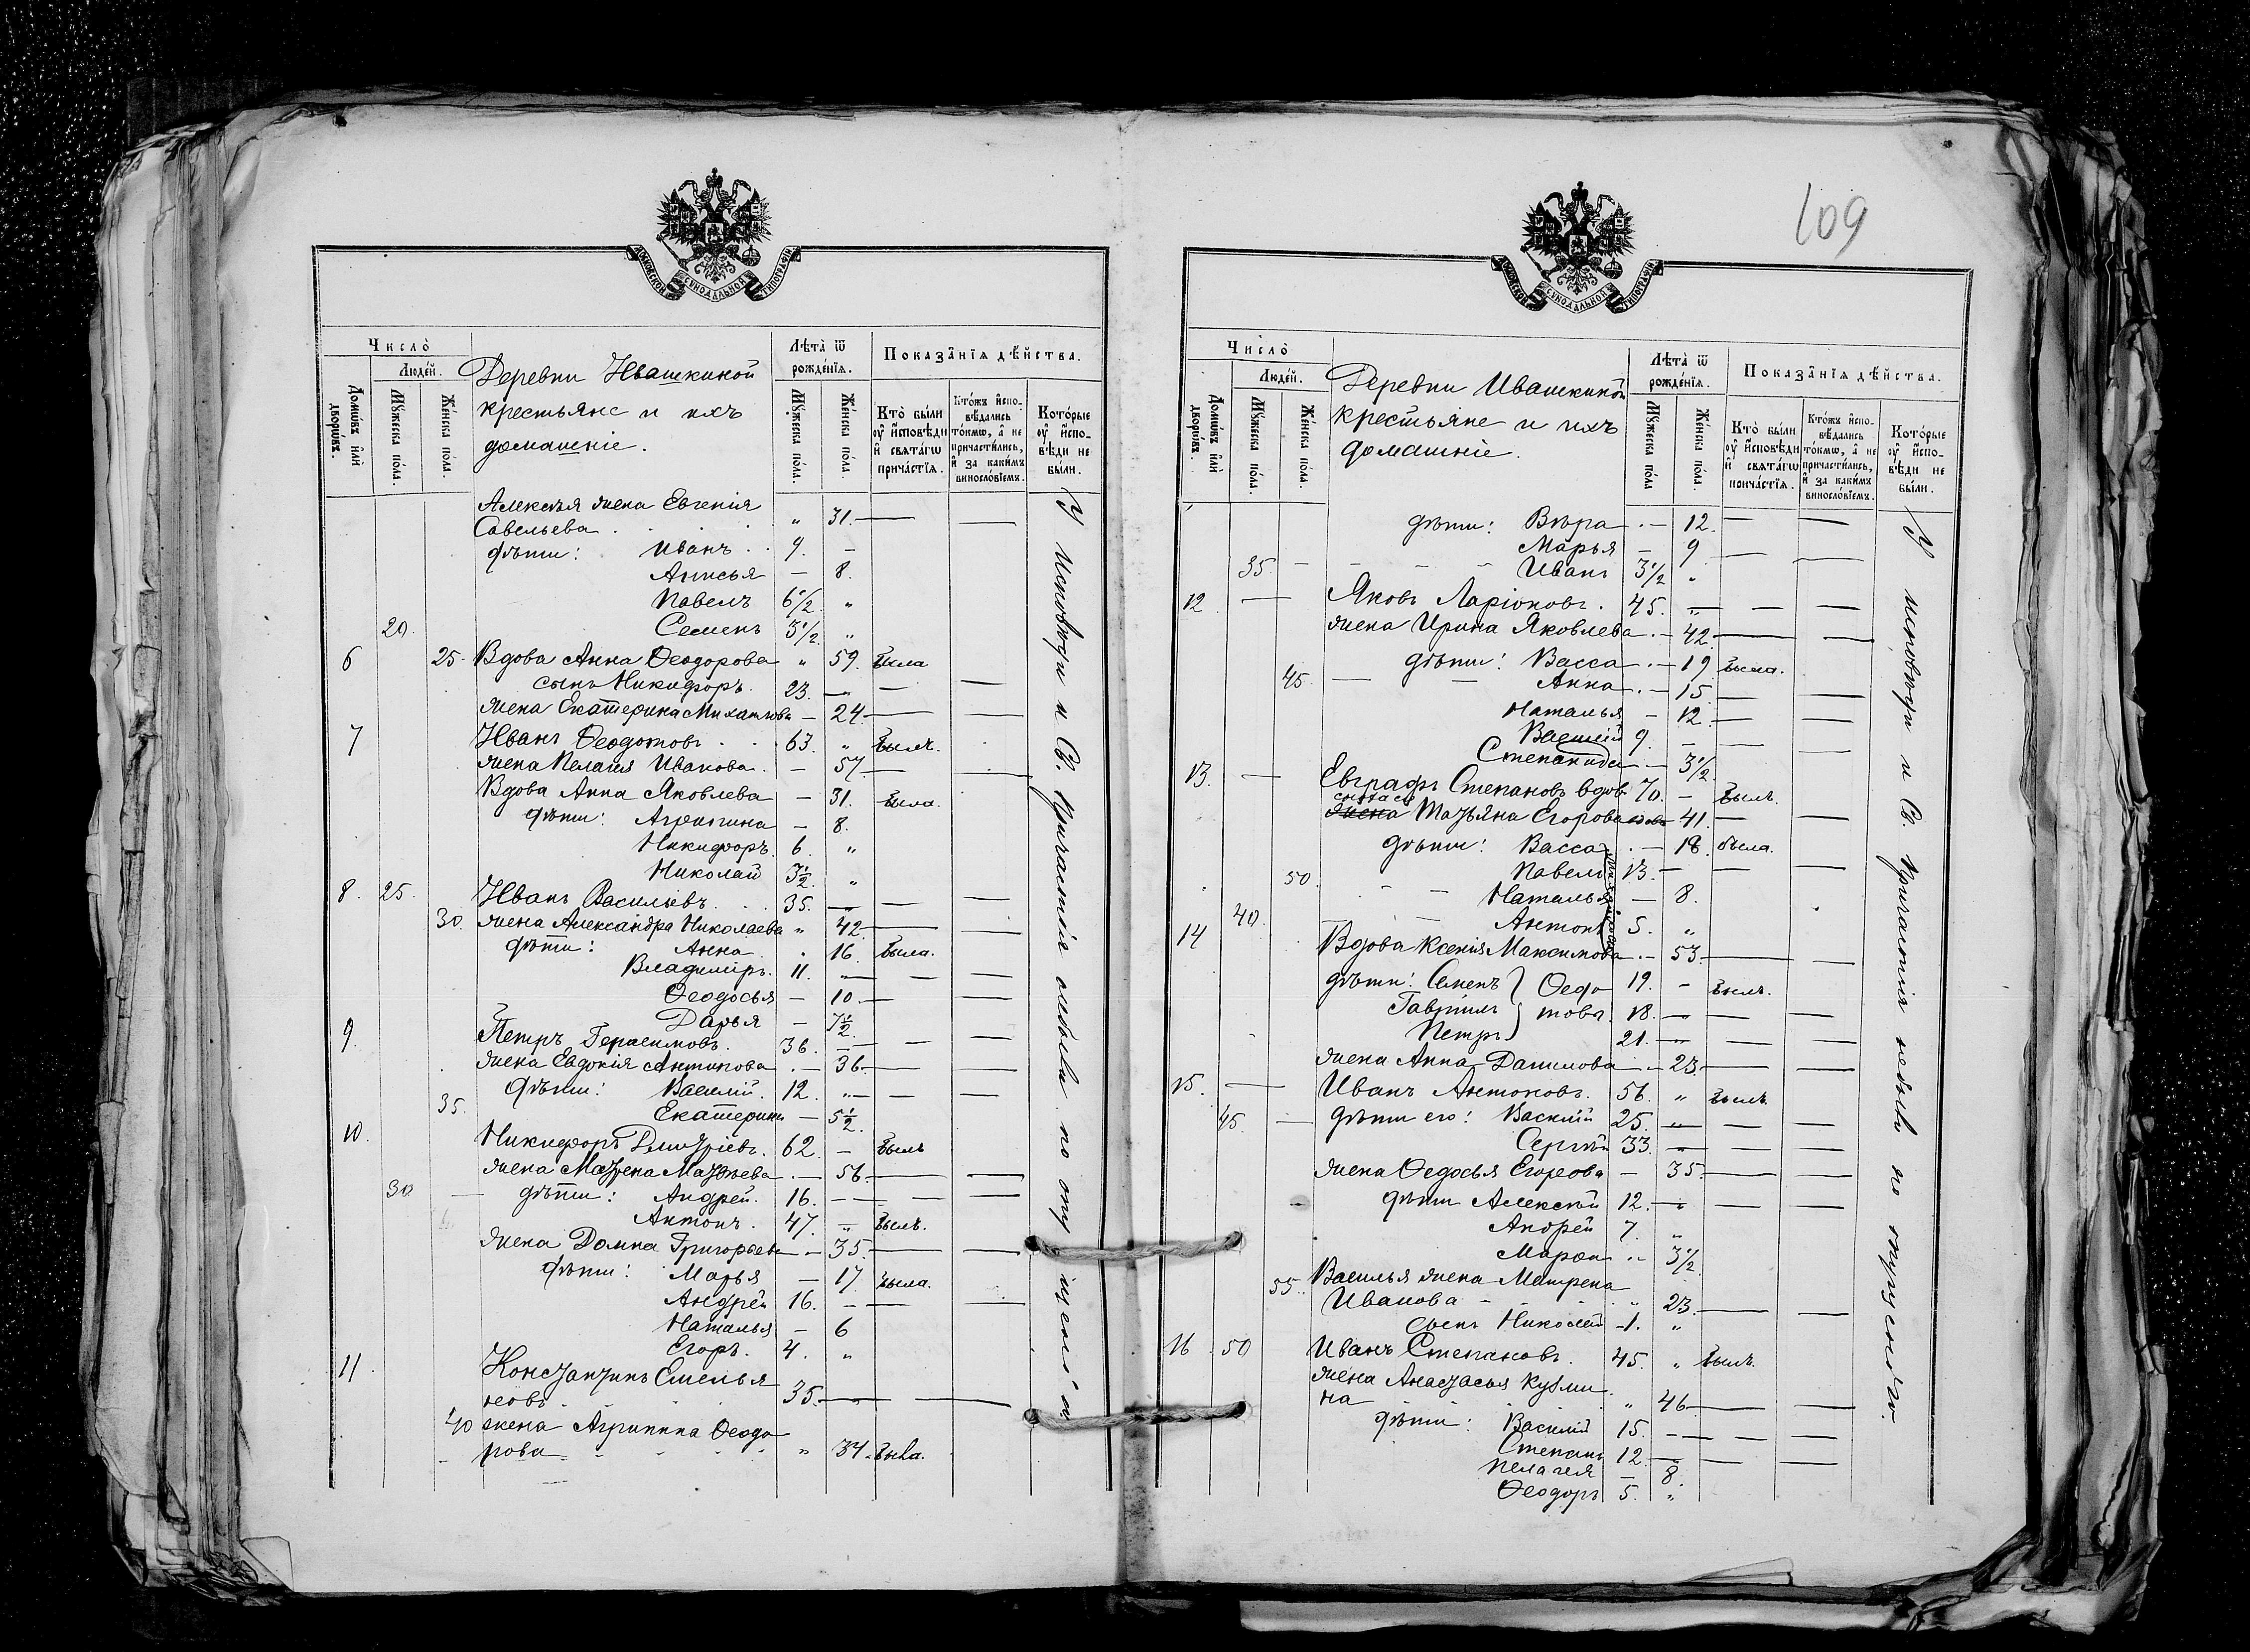 МОСКОВСКОЙ СѴНОДАЛЬНОЙ ТИПОГРАФІИ
Число̀
Людей.
Домѡвъ и҆лѝ дворѡвъ.
Мꙋжеска пола.
Же́нска пола.
Деревни Ивашкиной
крестьяне и ихъ
домашніе.
Лѣта̀ ѿ рожде́нїѧ.
Мꙋжеска пола.
Же́нска пола.
Показа̑нїѧ дѣйства.
Кто̀ бы́ли оу҆ и҆сповѣди и҆ свѧта́гѡ прича́стїѧ.
Кто́жъ и҆спо-вѣдались то́кмѡ, а҆ не причасти́лись, и҆ за каки́мъ винословїемъ.
Кото́рые оу҆ и҆спо-вѣди не бы́ли.
Алексѣя жена Евгенія
Савельева . " 31. — —
дѣти: Иванъ . . 9. —
Анисья — 8.
Павелъ 6 1/2. "
20. Семенъ 3 1/2. "
6 25. Вдова Анна Ѳеодорова " 59. Была
сынъ Никифоръ. 23. — — —
жена Екатерина Михаилова — 24. — —
7 Иванъ Ѳеодотовъ . . 63. " Былъ.
жена Пелагія Иванова. — 57 — —
Вдова Анна Яковлева — 31. Была.
дѣти: Агрипина — 8.
Никифоръ. 6. "
Николай 3 1/2. "
8. 25. Иванъ Васильевъ. . . 35. — — —
30. жена Александра Николаева " 42. — —
дѣти: Анна . 16. Была.
Владиміръ. 11. " — — —
Ѳеодосья — 10. — —
Дарья — 7 1/2.
9. Петръ Герасимовъ. 36. — — —
жена Евдокія Антипова . — 36. — —
дѣти: Василій. 12. " — — —
35. Екатерина — 5 1/2.
10. Никифоръ Дмитріевъ. 62. — Былъ
жена Матрена Матвѣева . — 56. — —
30 — дѣти: Андрей. 16. — — — —
Антонъ. 47. — Былъ.
жена Домна Григорьева — 35. — —
дѣти: Марья — 17. Была.
Андрей 16. — — —
Наталья — 6
Егоръ. 4. "
11. Константинъ Емелья
новъ . 35. — — —
40 жена Агрипина Ѳеодо
рова " 34. Была.
У исповѣди и Св. Причастія не были по опущенію
109
МОСКОВСКОЙ СѴНОДАЛЬНОЙ ТИПОГРАФІИ
Число̀
Людей.
Домѡвъ и҆лѝ дворѡвъ.
Мꙋжеска пола.
Же́нска пола.
Деревни Ивашкиной
крестьяне и ихъ
домашніе.
Лѣта̀ ѿ рожде́нїѧ.
Мꙋжеска пола
Же́нска пола.
Показа̑нїѧ дѣйства.
Кто̀ бы́ли оу҆ и҆сповѣди и҆ свѧта́гѡ прича́стїѧ.
Кто́жъ и҆спо-вѣдались то́кмѡ, а҆ не причасти́лись, и҆ за каки́мъ винословїемъ.
Кото́рые оу҆ и҆спо-вѣди не бы́ли.
дѣти: Вѣра . — 12. — —
Марья — 9. — —
35. — Иванъ 3 1/2 "
12. — Яковъ Ларіоновъ. 45. — — —
жена Ирина Яковлева . — 42. — —
дѣти: Васса . — 19 Была.
45. — Анна . — 15 — —
Наталья — 12. — —
Василій 9. — — —
Степанида — 3 1/2.
13. — Евграфъ Степановъ вдов. 70. — Былъ.
сноха его
жена Татьяна Егорова вдова 41. — —
дѣти: Васса . — 18. Была.
50. Павелъ 13. — — —
Наталья — 8.
40. Антонъ 5. "
14 Вдова Ксенія Максимова . — 53. — —
дѣти: Семенъ } Ѳедо 19. — Былъ.
Гавріилъ } товы. 18. — — —
Петръ 21. — — —
жена Анна Данилова — 23. — —
15. — Иванъ Антоновъ. 56. " Былъ.
45. — дѣти его: Василій 25. " — —
Сергѣй 33. — — —
жена Ѳедосья Егорова — 35. — —
дѣти Алексѣй 12. — — —
Андрей 7. "
3 1/2
55. Василья жена Матрена
Иванова — " 23. — —
сынъ Николай 1. "
16. 50 Иванъ Степановъ. 45. " Былъ.
жена Анастасья Кузми
на " 46. — —
дѣти: Василій 15. — — — —
Степанъ 12. — — —
Пелагея — 8.
Ѳеодоръ 5. "
У исповѣди и Св. Причастія не были по опущенію.